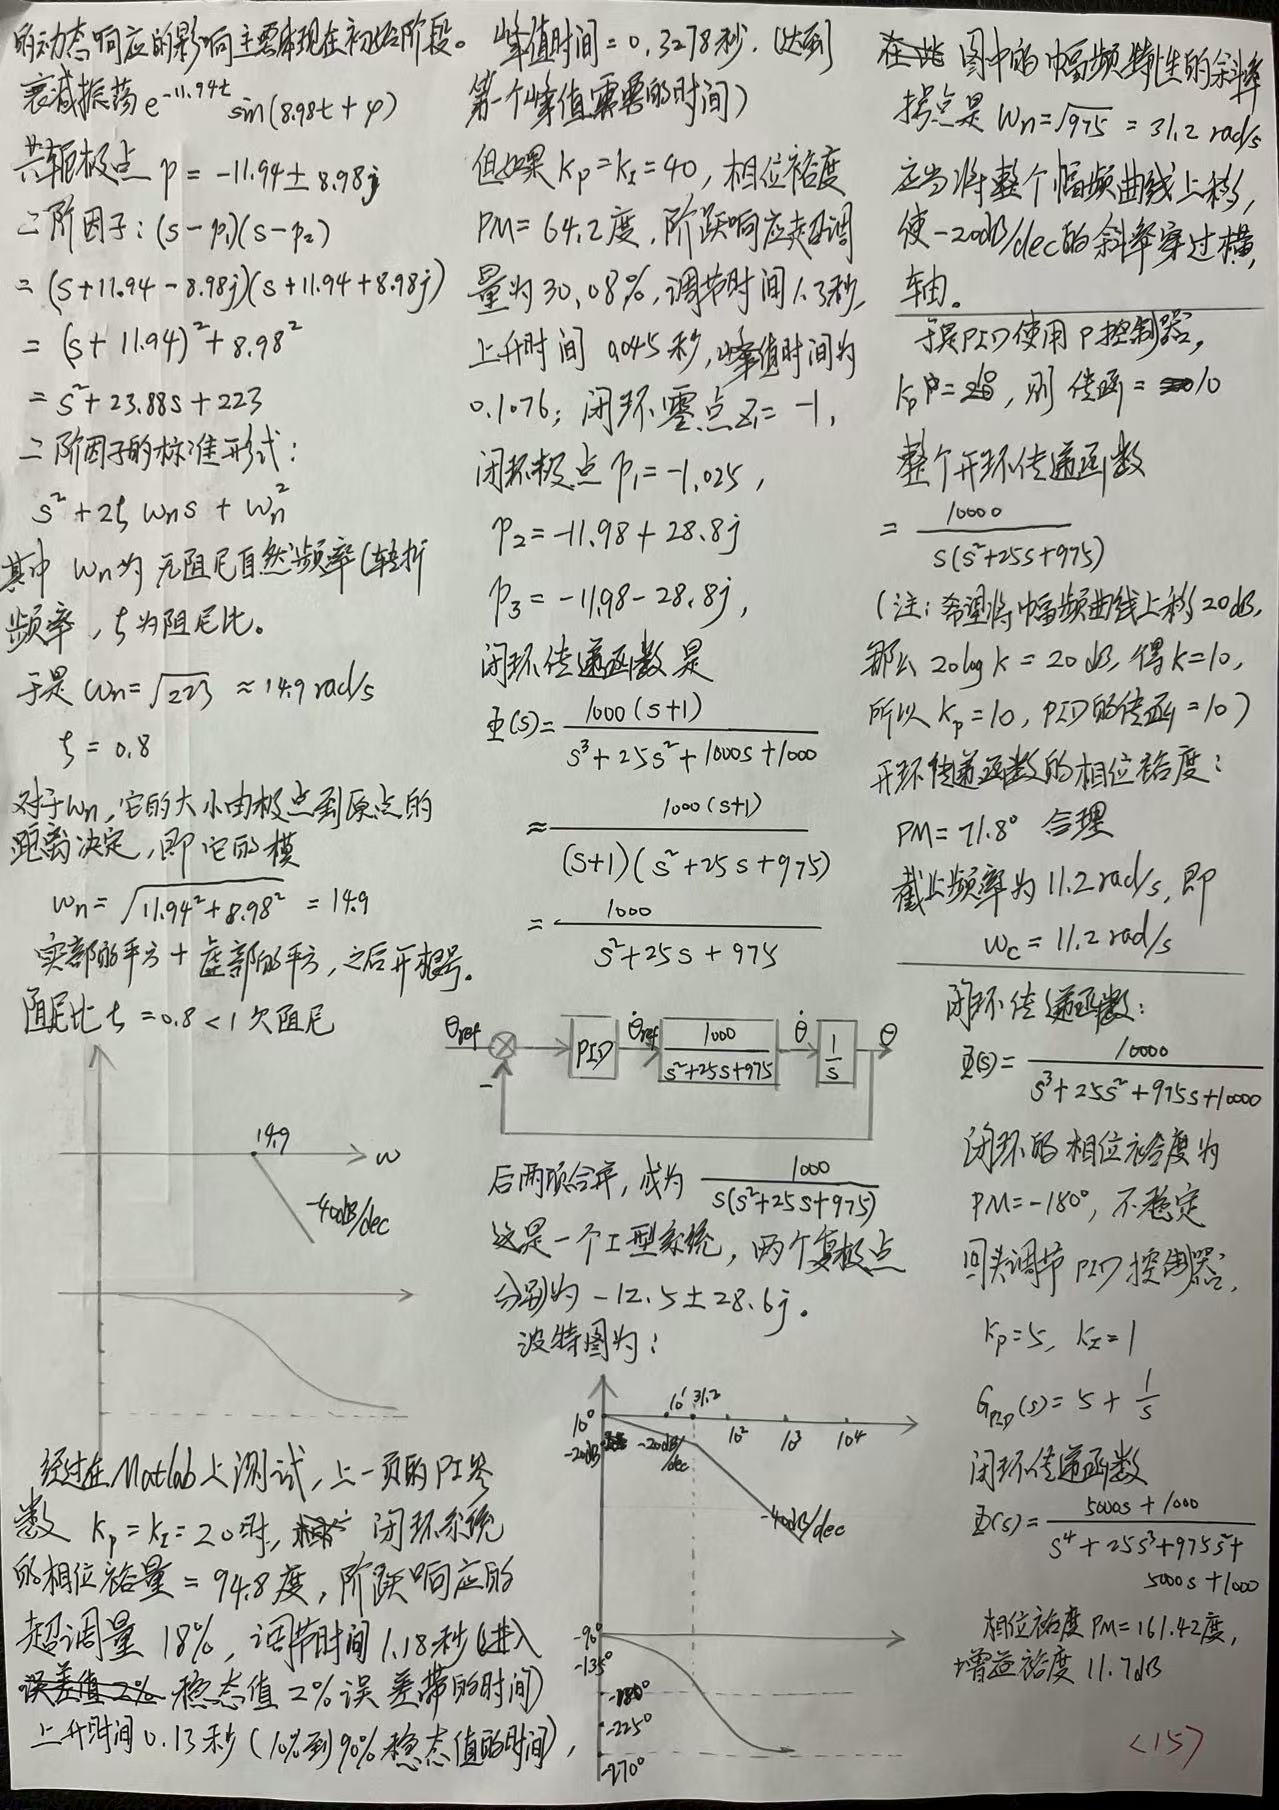 的动态响应的影响主要体现在初始阶段。
衰减振荡 e^{-11.94t} sin(8.98t+φ)
共轭极点 p = -11.94 ± 8.98j
二阶因子：(s-p₁)(s-p₂)
= (s+11.94-8.98j)(s+11.94+8.98j)
= (s+11.94)²+8.98²
= s²+23.88s+223
二阶因子的标准形式：
s²+2ξωns+ωn²
其中 ωn为无阻尼自然频率(转折
频率，ξ为阻尼比。
于是 ωn=√223 ≈14.9 rad/s
ξ=0.8
对于ωn，它的大小由极点到原点的
距离决定，即它的模
ωn=√(11.94²+8.98²) = 14.9
实部的平方+虚部的平方，之后开根号。
阻尼比ξ=0.8<1 欠阻尼
14.9
ω
-40dB/dec
经过在Matlab上测试，上一页的PI参
数 Kp=KI=20时， 闭环系统
的相位裕量=94.8度，阶跃响应的
超调量 18%，调节时间1.18秒(进入
误差值2% 稳态值2%误差带的时间)
上升时间0.13秒(10%到90%稳态值的时间)，
峰值时间=0.3278秒.(达到
第一个峰值需要的时间)
但如果Kp=KI=40，相位裕度
PM=64.2度，阶跃响应超调
量为30.08%，调节时间1.3秒，
上升时间 0.045秒，峰值时间为
0.1076；闭环零点z₁=-1，
闭环极点 p₁=-1.025，
p₂=-11.98+28.8j
p₃=-11.98-28.8j，
闭环传递函数是
Φ(s)= 1000(s+1) / (s³+25s²+1000s+1000)
≈ 1000(s+1) / ((s+1)(s²+25s+975))
= 1000 / (s²+25s+975)
θref
-
PID
θ̇ref
1000 / (s²+25s+975)
θ̇
1/s
θ
后两项合并，成为 1000 / (s(s²+25s+975))
这是一个I型系统，两个复极点
分别为 -12.5±28.6j。
波特图为：
10⁰ 10¹ 31.2 10² 10³ 10⁴
-20dB
-20dB/dec
-40dB/dec
-90°
-135°
-180°
-225°
-270°
在此 图中的幅频特性的斜率
拐点是 ωn=√975 = 31.2 rad/s
应当将整个幅频曲线上移，
使-20dB/dec的斜率穿过横
轴。
于是PID使用P控制器，
传函= 10
整个开环传递函数
= 10000 / (s(s²+25s+975))
(注：希望将幅频曲线上移20dB，
那么 20log K = 20 dB，得K=10，
所以 Kp=10，PID的传函=10)
开环传递函数的相位裕度：
PM=71.8° 合理
截止频率为11.2rad/s，即
ωc = 11.2 rad/s
闭环传递函数：
Φ(s)= 10000 / (s³+25s²+975s+10000)
闭环的相位裕度为
PM=-180°，不稳定
回头调节PID控制器，
Kp=5，KI=1
G_PID(s)= 5+1/s
闭环传递函数
Φ(s)= (5000s+1000) / (s⁴+25s³+975s²+
5000s+1000)
相位裕度PM=161.42度，
增益裕度 11.7dB
<15>